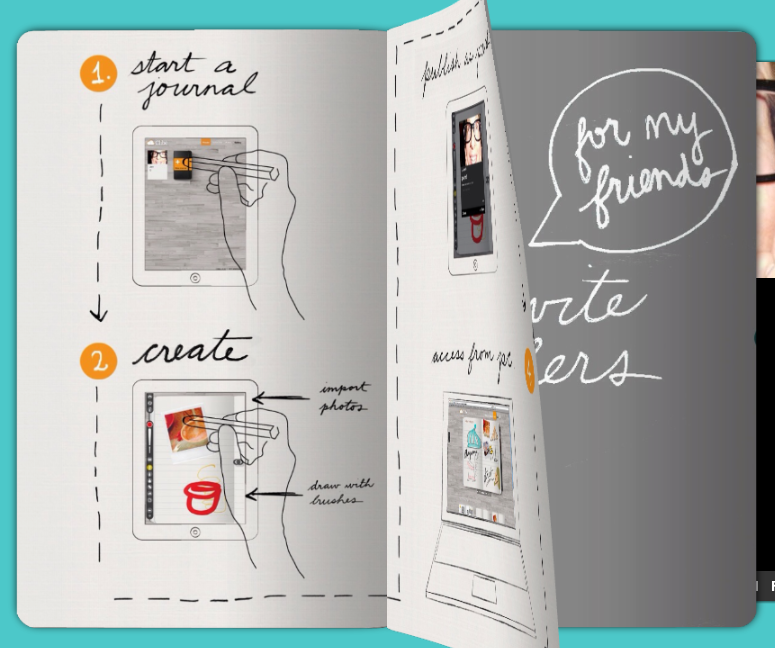 1.
start a
journal
2
create
import
photos
draw with
brushes
publish as
access from
for my
friends